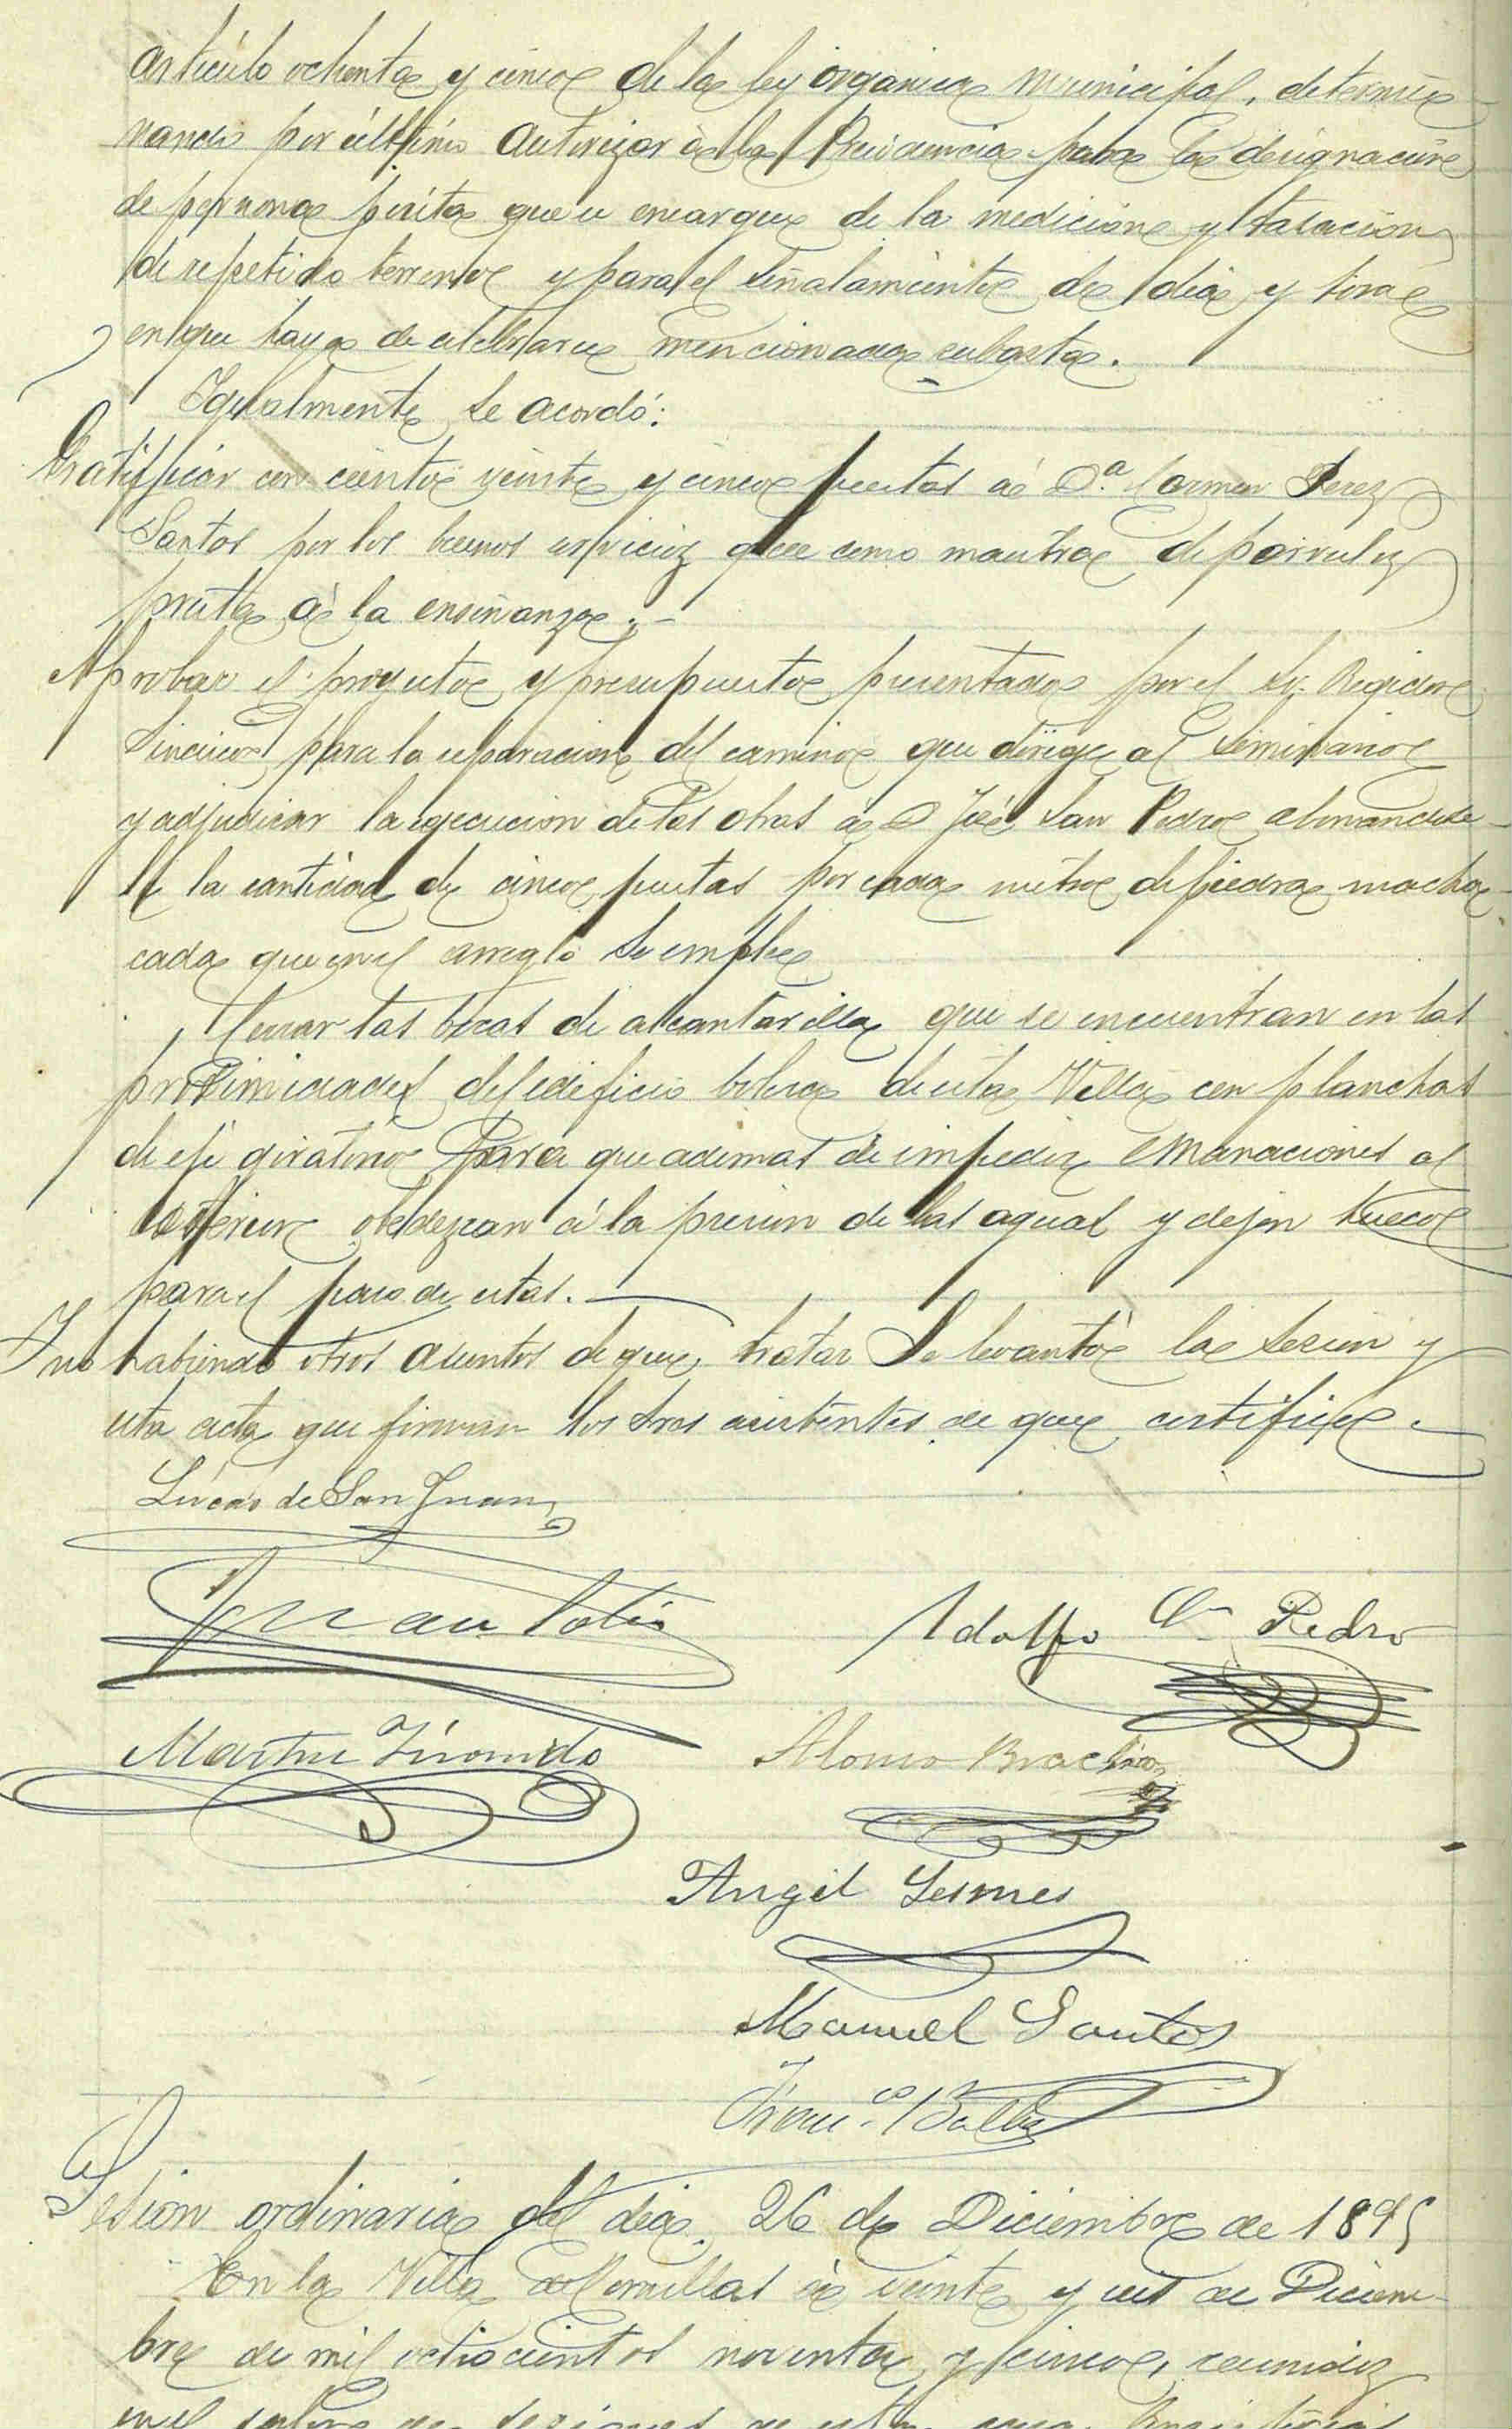 artículo ochenta y cinco de la ley orgánica municipal, determi-
nando por último autorizar á la Presidencia para la designacion
de persona perita que se encargue de la medicion y tasacion
de repetido terreno y para el señalamiento de dia y hora
en que haya de celebrarse mencionada subasta.
Igualmente se acordó:
Gratificar con ciento veinte y cinco pesetas á D.ª Carmen Perez
Santos por los buenos servicios que como maestra de parvulos
presta á la enseñanza.-
Aprobar el proyecto y presupuesto presentado por el Sr. Regidor
Sindico para la reparacion del camino que dirige al Seminario
y adjudicar la ejecucion de las obras á D José San Pedro abonandose-
le la cantidad de cinco pesetas por cada metro de piedra macha-
cada que en el arreglo se emplee
Cerrar las bocas de alcantarilla que se encuentran en las
proximidades del edificio bolera de esta Villa con planchas
de eje giratorio para que ademas de impedir emanaciones al
esterior obedezcan á la presion de las aguas y dejen hueco
para el paso de estas.
Y no habiendo otros asuntos de que tratar se levantó la sesion y
esta acta que firman los Sres asistentes de que certifico.
Lucas de San Juan
Adolfo Sn Pedro
Martin
Alonso
Angel Lesmes
Manuel Santos
Franco Balbas
Sesion ordinaria del dia 26 de Diciembre de 1895
En la Villa de Comillas á veinte y seis de Diciem-
bre de mil ochocientos noventa y cinco, reunidos
en el salon de sesiones de esta casa Consistorial